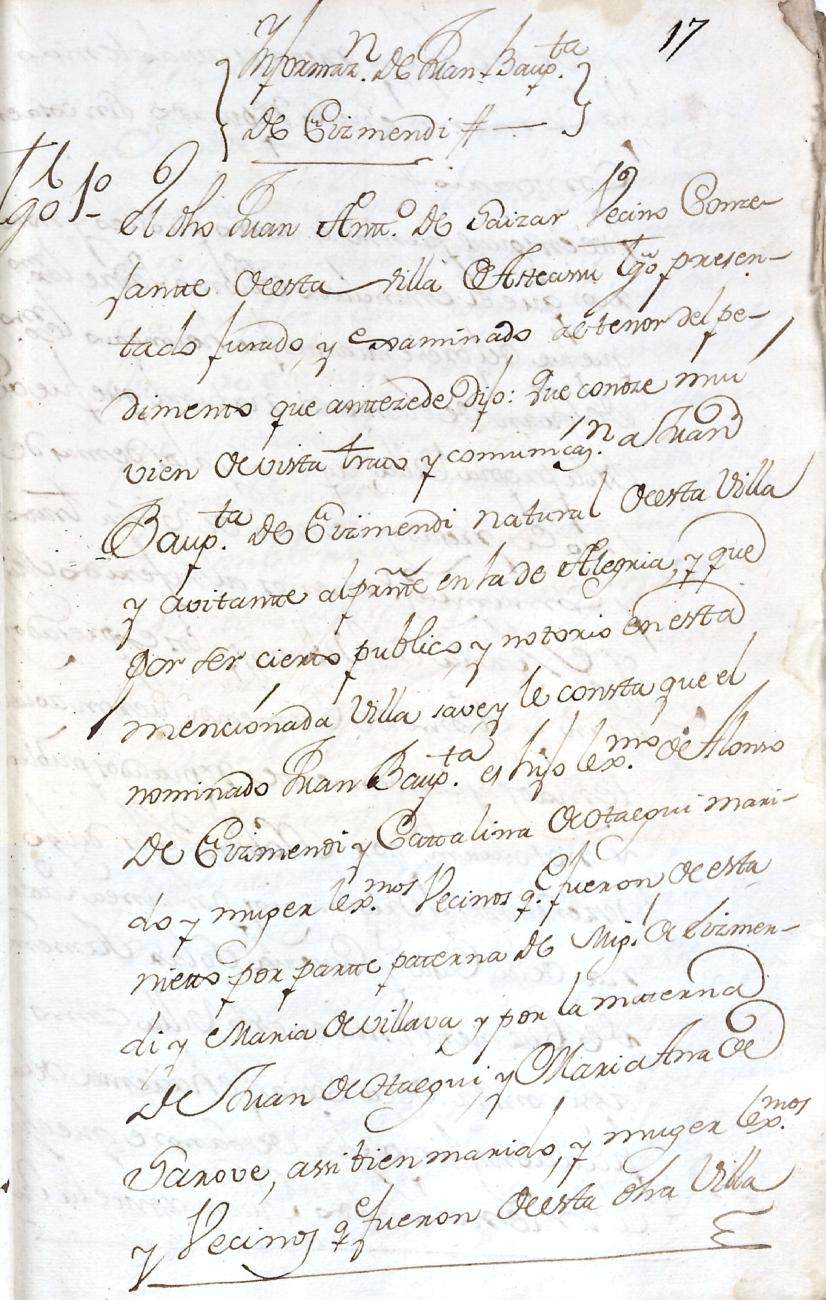 17
Ynformaz.n de Juan Baup.ta
de Eizmendi #
Tgo 1º
El dho Juan Antt.º de Saizar Vecino Conze-
jantte de esta villa de Asteasu Tgº presen-
tado jurado, y examinado al tenor del pe-
dimento que antezede Dijo: Que conoze mui
vien de vista trato y comunicaz.n a Juan
Baup.ta de Eizmendi natural de esta Villa
y avitante al presnte en la de Alegria, y que
por ser cierto publico, y notorio en esta
mencionada Villa save y le consta que el
nominado Juan Baup.ta es hijo lex.mo de Alonso
de Eizmendi y Cattalina de Otaegui mari-
do y muger lex.mos Vecinos q.e fueron de esta
nietto por partte paterna de Mig.l de Eizmen-
di y Maria de Villava, y por la materna
de Juan de Otaegui y Maria Ana de
Sarove, assi bien marido, y muger lex.mos
y Vecinos q.e fueron de esta dha Villa